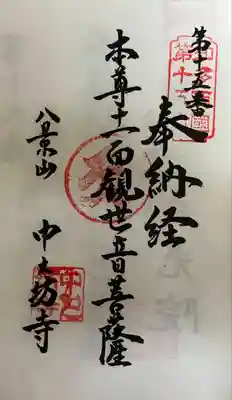 第十五番
奉納経
本尊十一面観世音菩薩
八景山
中之坊寺